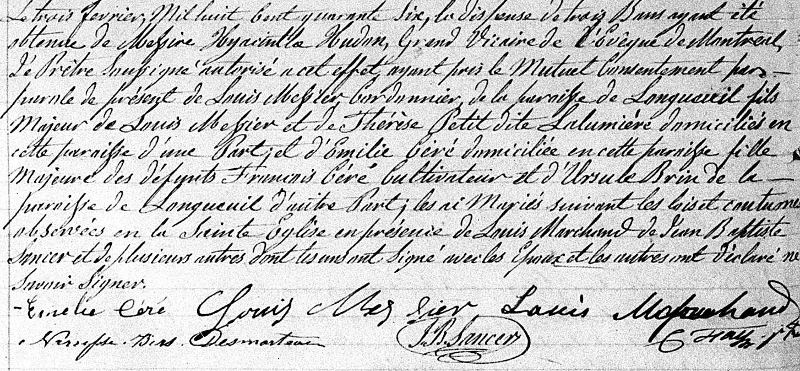 Le trois fevrier, Mil huit Cent quarante Six, la dispense de trois Bans ayant été
obtenue de Messire Hyacinthe Hudon, Grand Vicaire de l'Evêque de Montreal,
Le Prêtre Soussigné autorisé a cet effet, ayant pris le Mutuel Consentement par
parole de présent de Louis Messier Cordonnier, de la paroisse de Longueuil fils
Majeur de Louis Messier et de Thérèse Petit dite Lalumière domiciliés en
cette paroisse d'une Part; et d'Emilie Céré domiciliée en cette paroisse fille
Majeure des défunts François Céré Cultivateur et d'Ursule Brin de la
paroisse de Longueuil d'autre Part; les a Mariés suivant les lois et coutumes
observées en la Sainte Eglise en présence de Louis Marchand de Jean Baptiste
Sancer et de plusieurs autres dont les uns ont Signé avec les Epoux et les autres ont déclaré ne
Savoir Signer.
Emélie Céré Louis Messier Louis Marchand
Desmarteau J.B. Sancer